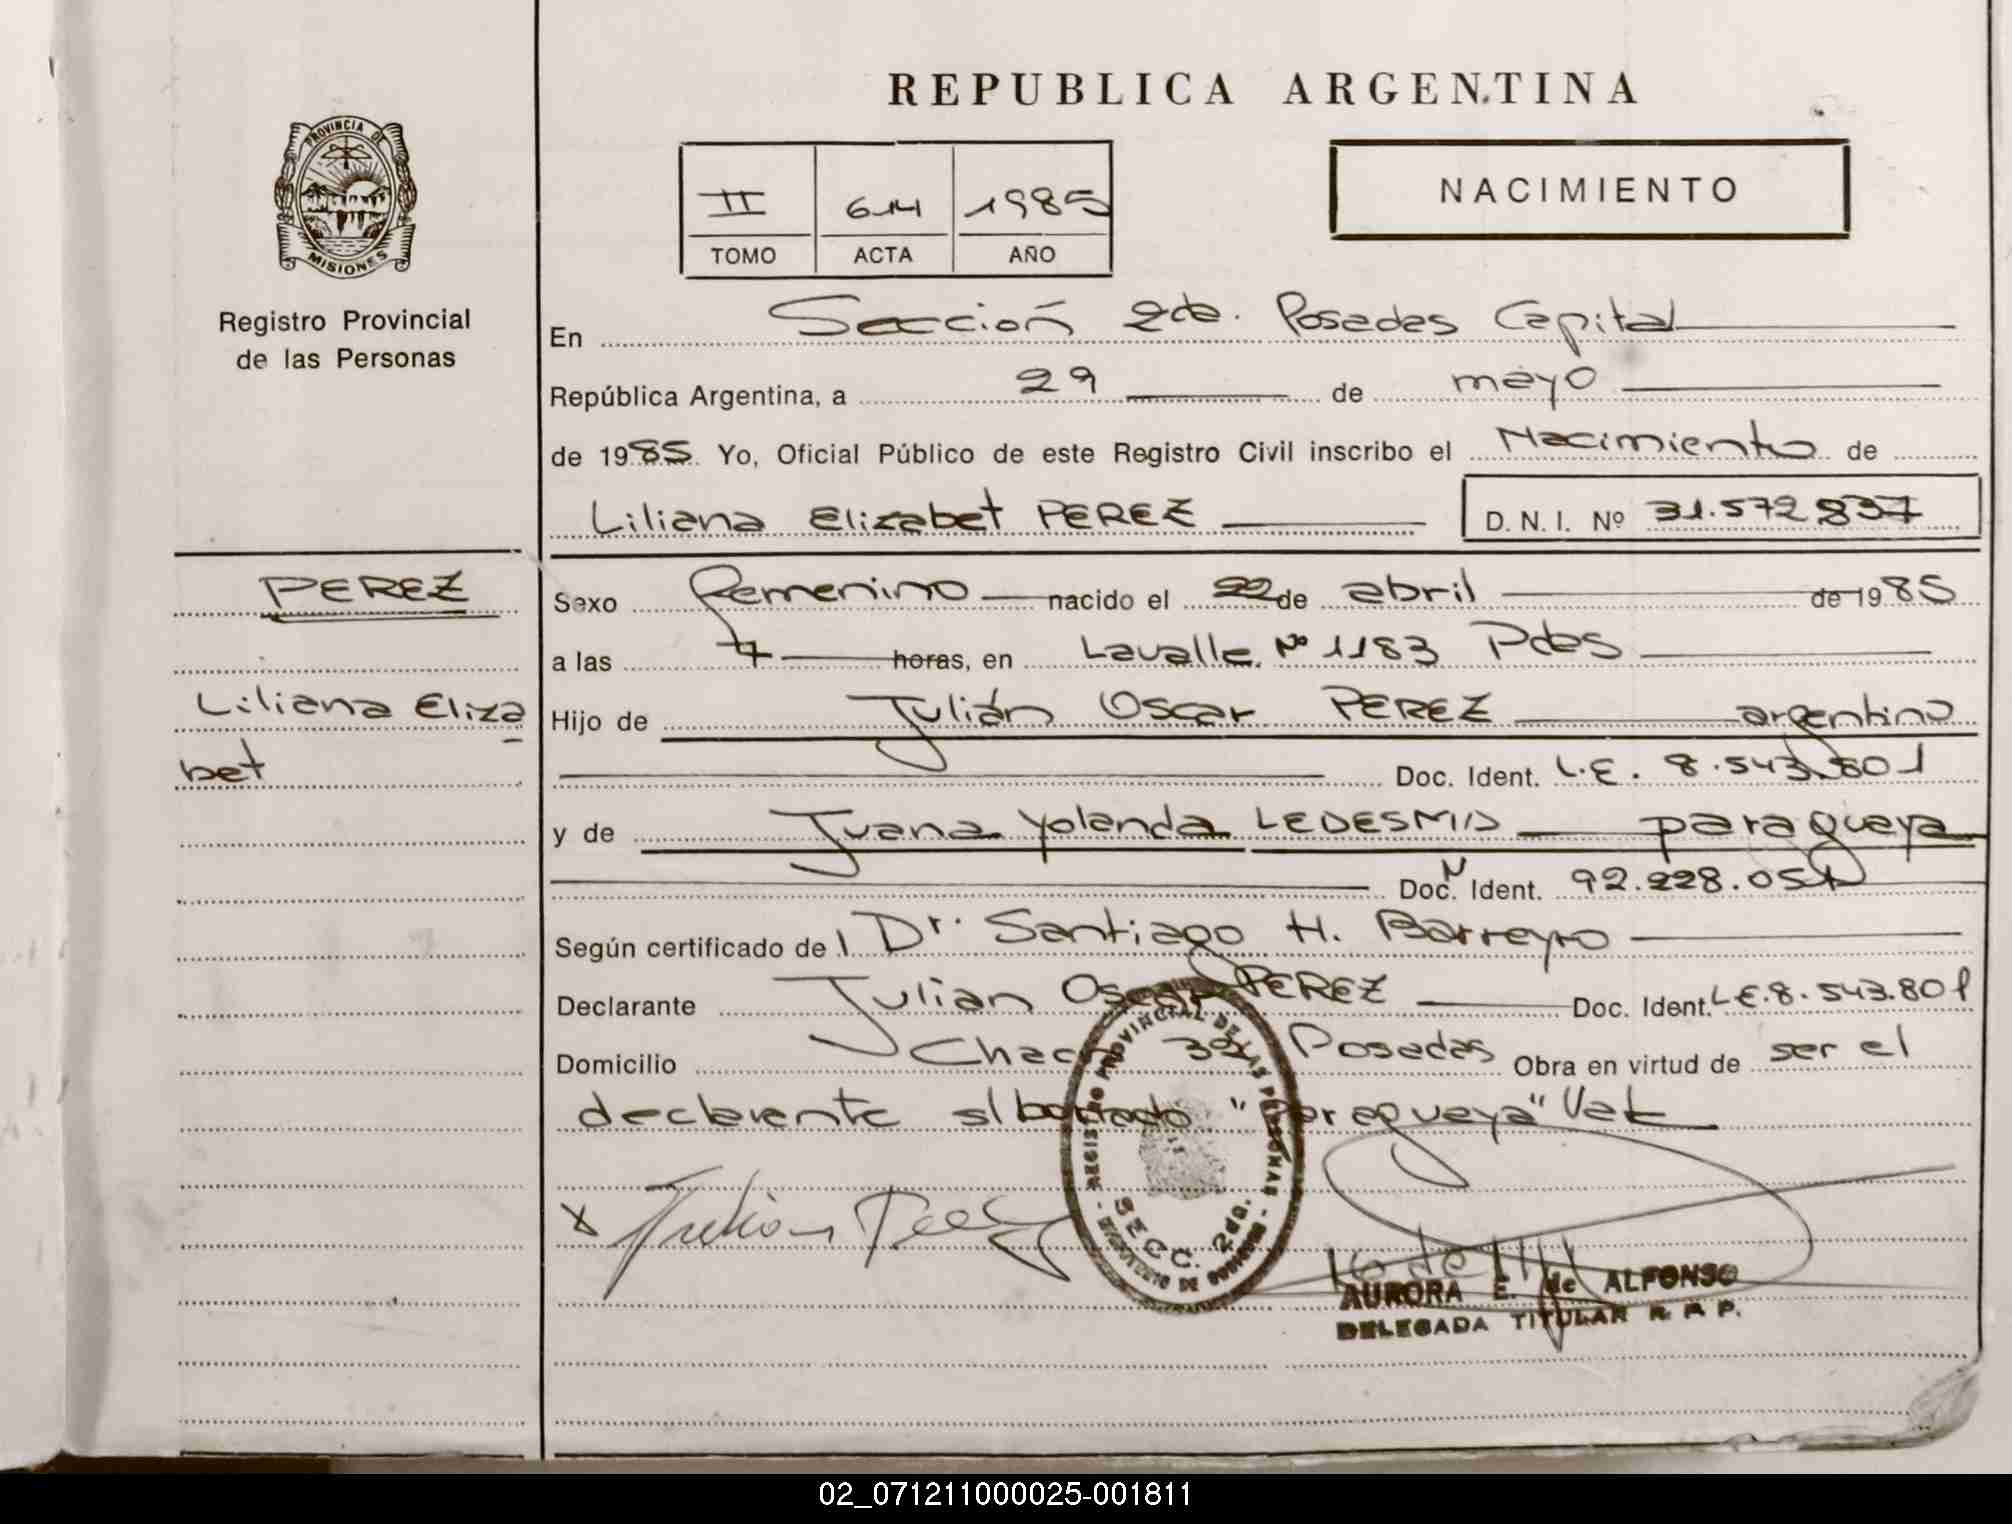 REPUBLICA ARGENTINA
PROVINCIA DE MISIONES
Registro Provincial
de las Personas
II 614 1985
TOMO ACTA AÑO
NACIMIENTO
En Sección 2da. Posadas Capital
República Argentina, a 29 de mayo
de 1985 Yo, Oficial Público de este Registro Civil inscribo el Nacimiento de
Liliana Elizabet PEREZ D. N. I. Nº 31.572.837
PEREZ
Liliana Eliza
bet
Sexo femenino nacido el 22 de abril de 1985
a las 7 horas, en Lavalle Nº 1183 Pdas
Hijo de Julián Oscar PEREZ argentino
Doc. Ident. L.E. 8.543.801
y de Juana Yolanda LEDESMA paraguaya
Doc. Ident. 92.228.051
Según certificado de l Dr. Santiago H. Barreyro
Declarante Julian Oscar PEREZ Doc. Ident. L.E. 8.543.801
Domicilio Posadas Obra en virtud de ser el
declarante s/borrado "paraguaya" Vale
x Julian Perez
REGISTRO PROVINCIAL DE LAS PERSONAS
SECC. 2da.
AURORA E. de ALFONSO
DELEGADA TITULAR R. P. P.
02_071211000025-001811